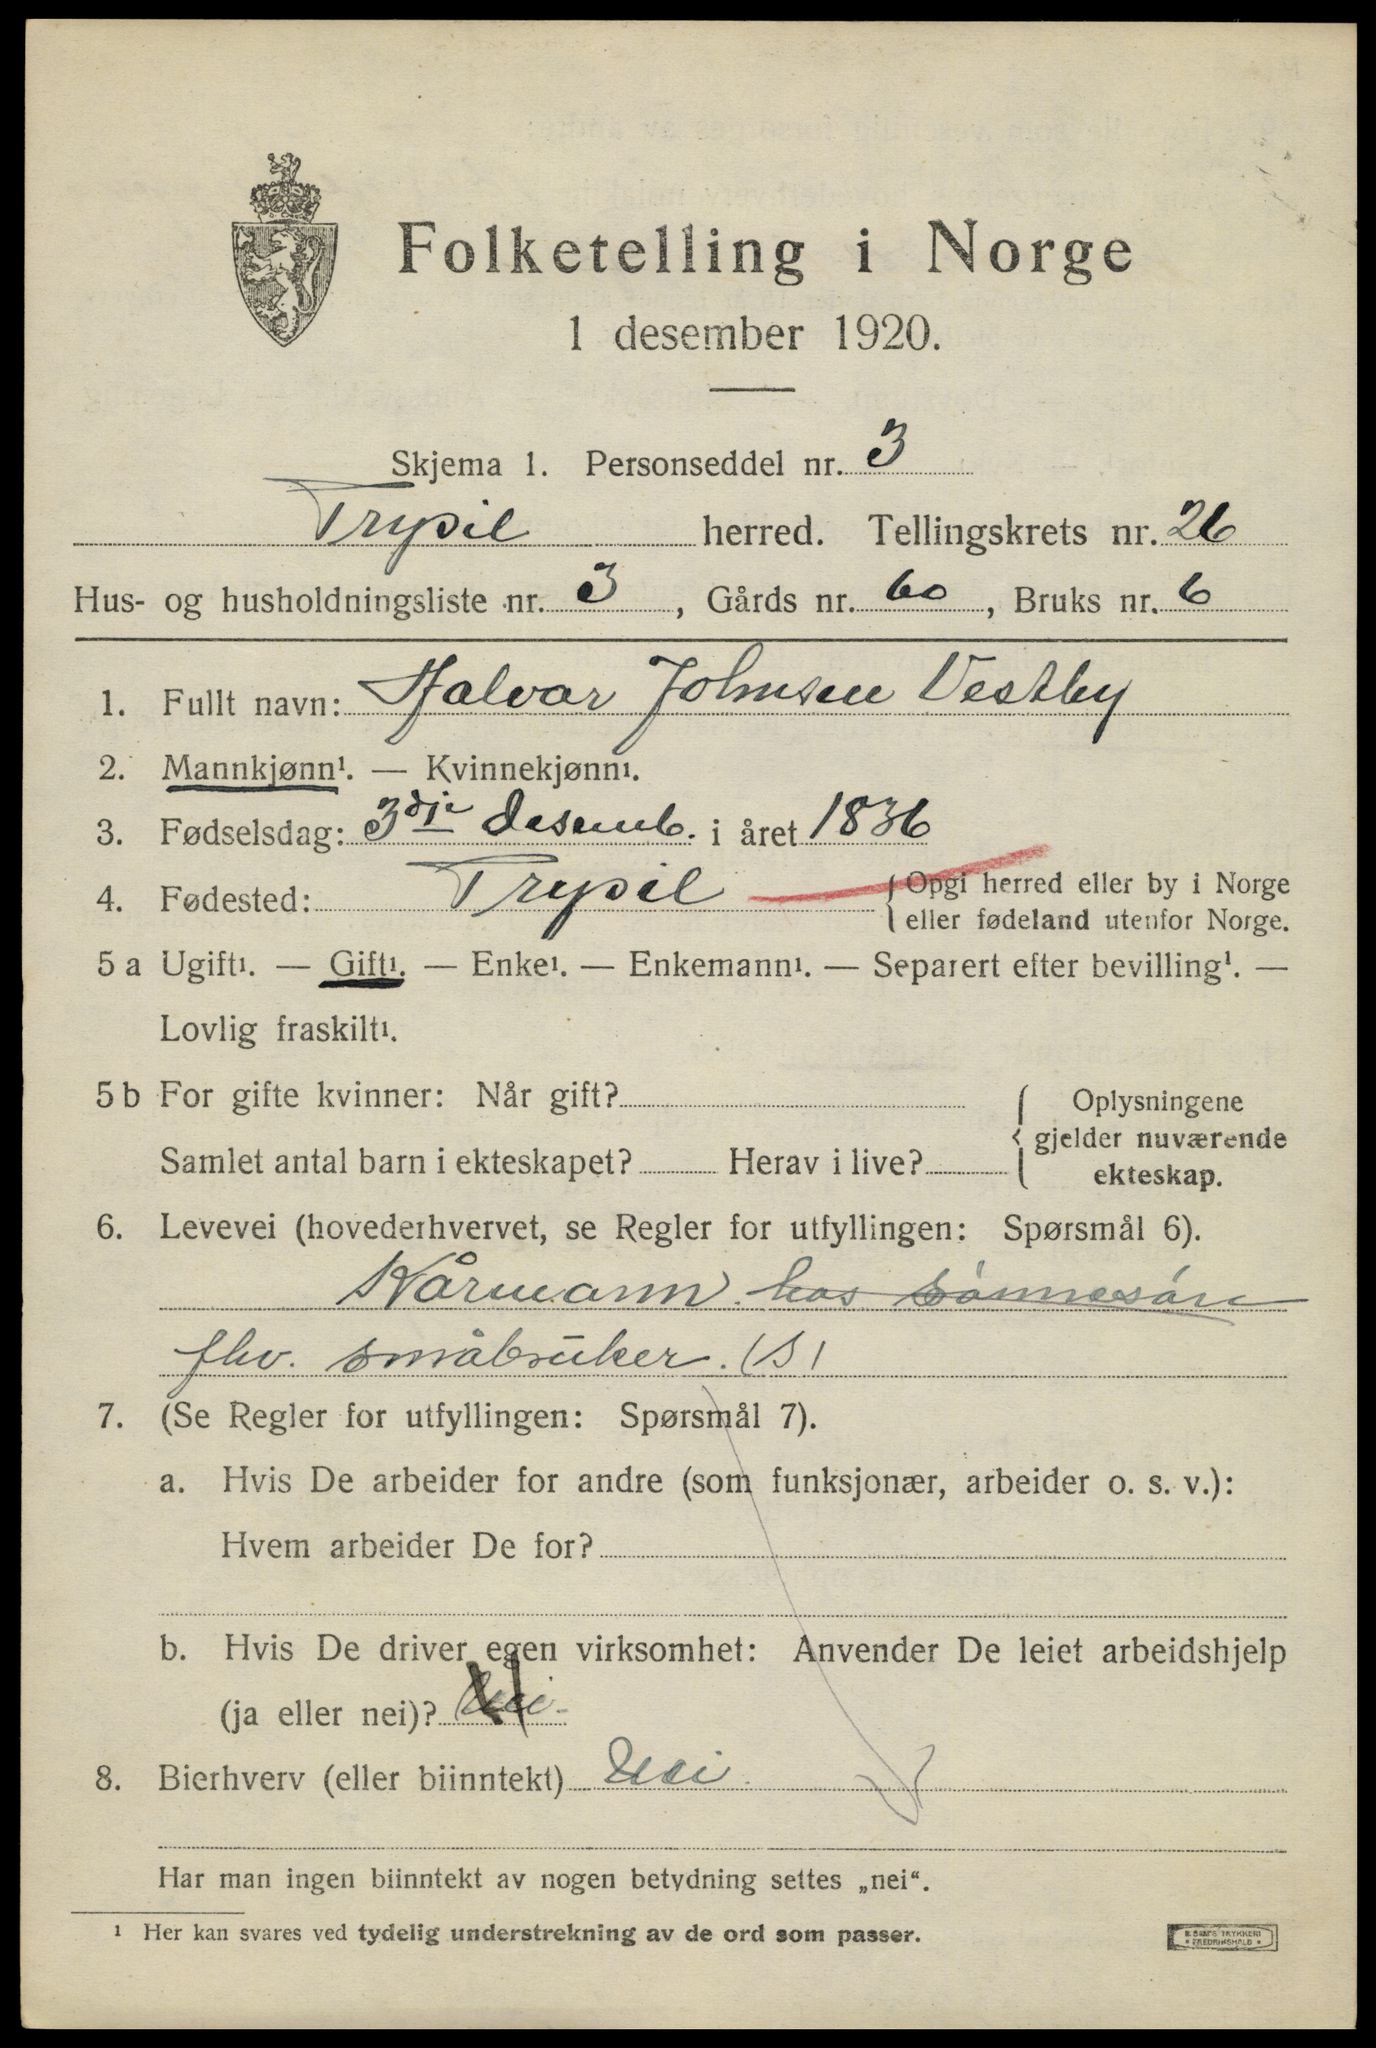 Folketelling i Norge
1 desember 1920.
Skjema 1. Personseddel nr. 3
Trysil herred. Tellingskrets nr. 26
Hus- og husholdningsliste nr. 3, Gårds nr. 60, Bruks nr. 6
1. Fullt navn: Halvor Johnsen Vestby
2. Mannkjønn¹. — Kvinnekjønn¹.
3. Fødselsdag: 3die desemb. i året 1836
4. Fødested: Trysil { Opgi herred eller by i Norge
eller fødeland utenfor Norge.
5 a Ugift¹. — Gift¹. — Enke¹. — Enkemann¹. — Separert efter bevilling¹. —
Lovlig fraskilt¹.
5 b For gifte kvinner: Når gift?
Samlet antal barn i ekteskapet? Herav i live?
{ Oplysningene
gjelder nuværende
ekteskap.
6. Levevei (hovederhvervet, se Regler for utfyllingen: Spørsmål 6).
Kårmann hos sønnesøn
fhv. småbruker. (S)
7. (Se Regler for utfyllingen: Spørsmål 7).
a. Hvis De arbeider for andre (som funksjonær, arbeider o. s. v.):
Hvem arbeider De for?
b. Hvis De driver egen virksomhet: Anvender De leiet arbeidshjelp
(ja eller nei)? Nei
8. Bierhverv (eller biinntekt) Nei
Har man ingen biinntekt av nogen betydning settes „nei“.
¹ Her kan svares ved tydelig understrekning av de ord som passer.